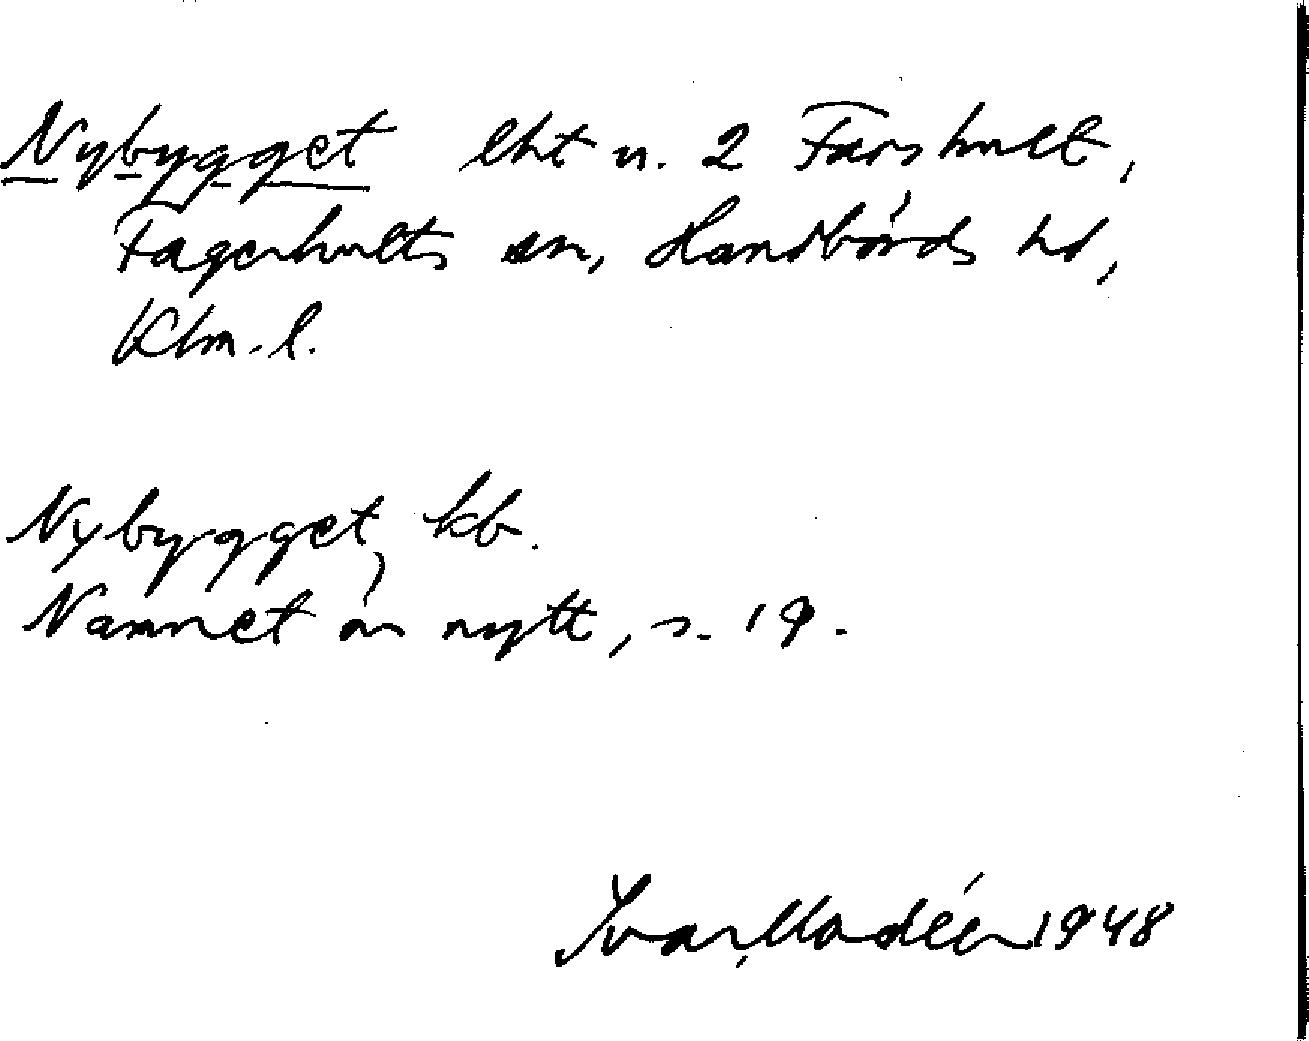 Nybygget lht u. 2 Farshult,
Fagerhults sn, Handbörds hd,
Klm. l.
Nybygget, kb.
Namnet är nytt, s. 19.
Ivar Modéer 1948